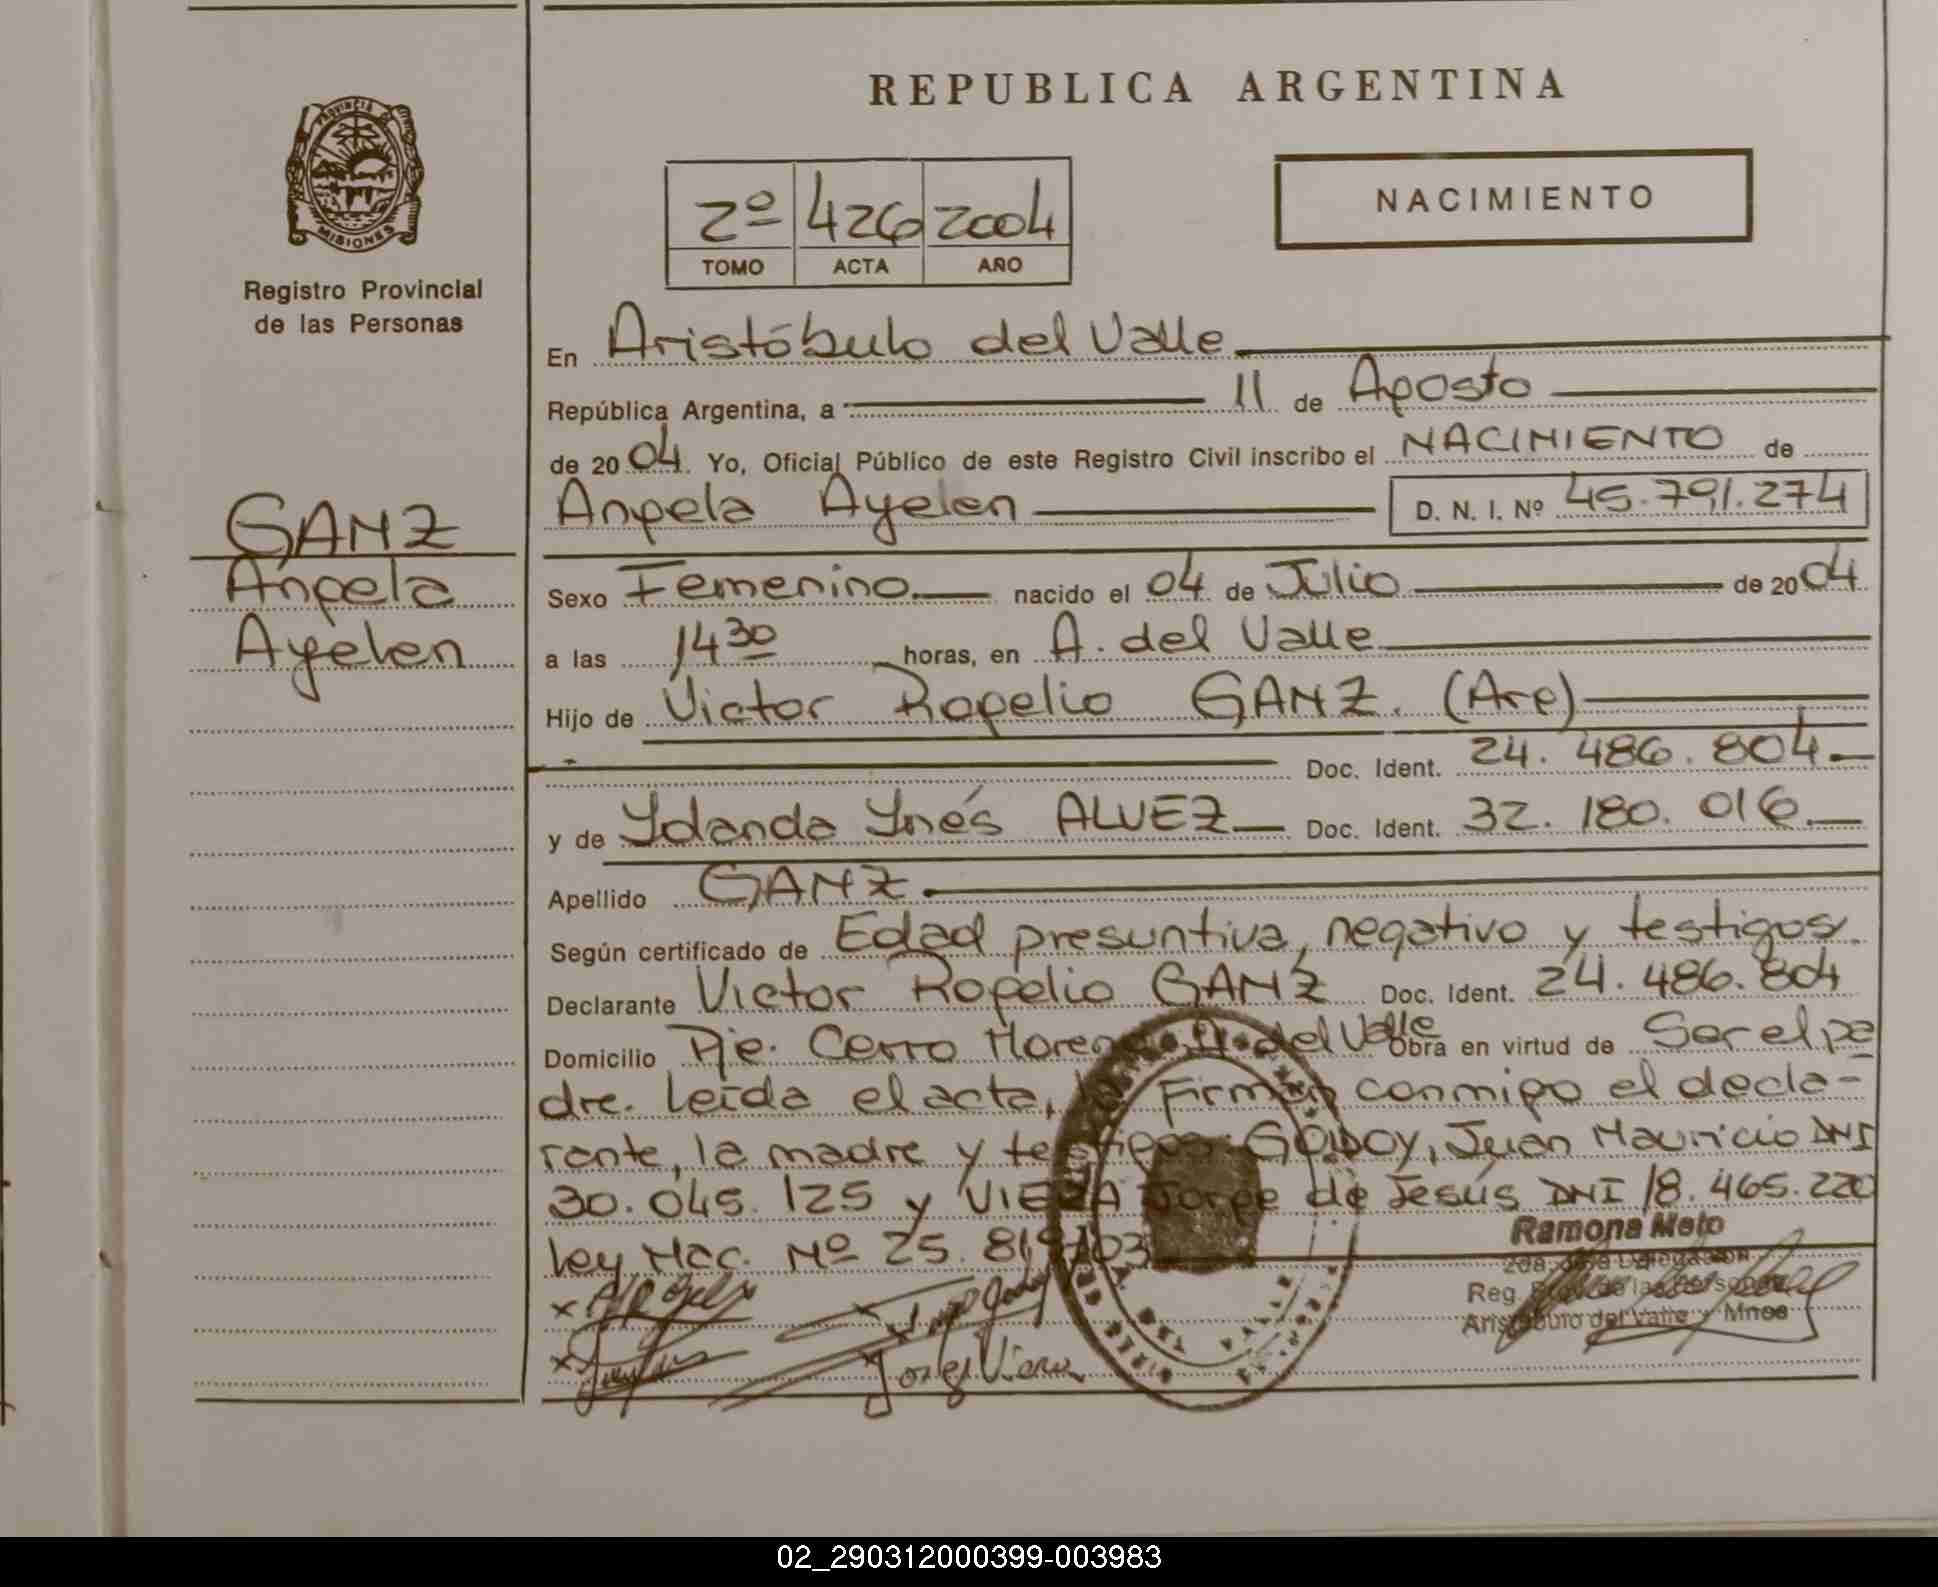 REPUBLICA ARGENTINA
PROVINCIA DE
MISIONES
Registro Provincial
de las Personas
GANZ
Angela
Ayelen
2º 426 2004
TOMO ACTA AÑO
NACIMIENTO
En Aristóbulo del Valle
República Argentina, a 11 de Agosto
de 2004. Yo, Oficial Público de este Registro Civil inscribo el NACIMIENTO de
Angela Ayelen D. N. I. Nº 45.791.274
Sexo Femenino nacido el 04 de Julio de 2004
a las 14 30 horas, en A. del Valle
Hijo de Victor Rogelio GANZ. (Arg)
Doc. Ident. 24.486.804
y de Yolanda Ynés ALVEZ Doc. Ident. 32.180.016
Apellido GANZ
Según certificado de Edad presuntiva, negativo y testigos.
Declarante Victor Rogelio GANZ Doc. Ident. 24.486.804
Domicilio Pje. Cerro Moreno A. del Valle Obra en virtud de Ser el pa
dre. Leída el acta, la firman conmigo el decla-
rante, la madre y testigos: GODOY, Juan Mauricio DNI
30.045.125 y VIERA Jorge de Jesús DNI 18.465.220
Ley Nac. Nº 25.819/03
Jorge Viera
Ramona Melo
Reg. Prov. de las Personas
Aristóbulo del Valle - Mnes
02_290312000399-003983